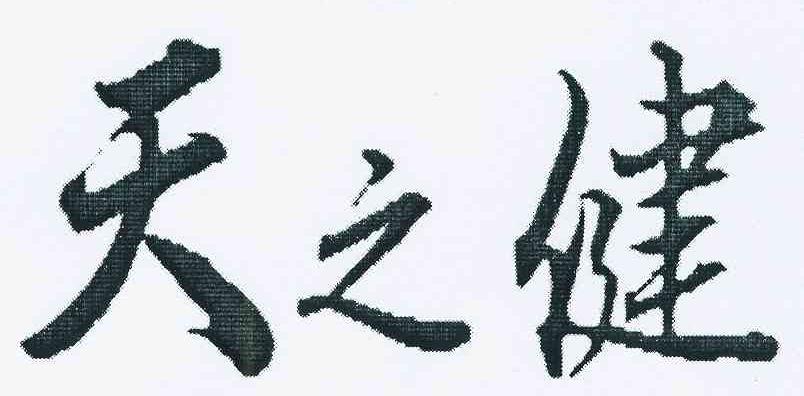 天之健